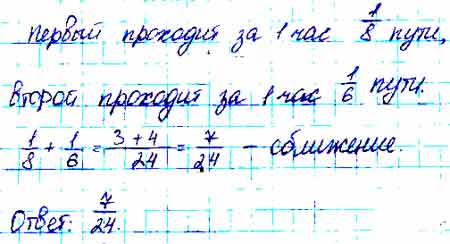 первый проходит за 1 час 1/8 пути,
второй проходит за 1 час 1/6 пути.
1/8 + 1/6 = 3+4/24 = 7/24 – сближение.
Ответ: 7/24.